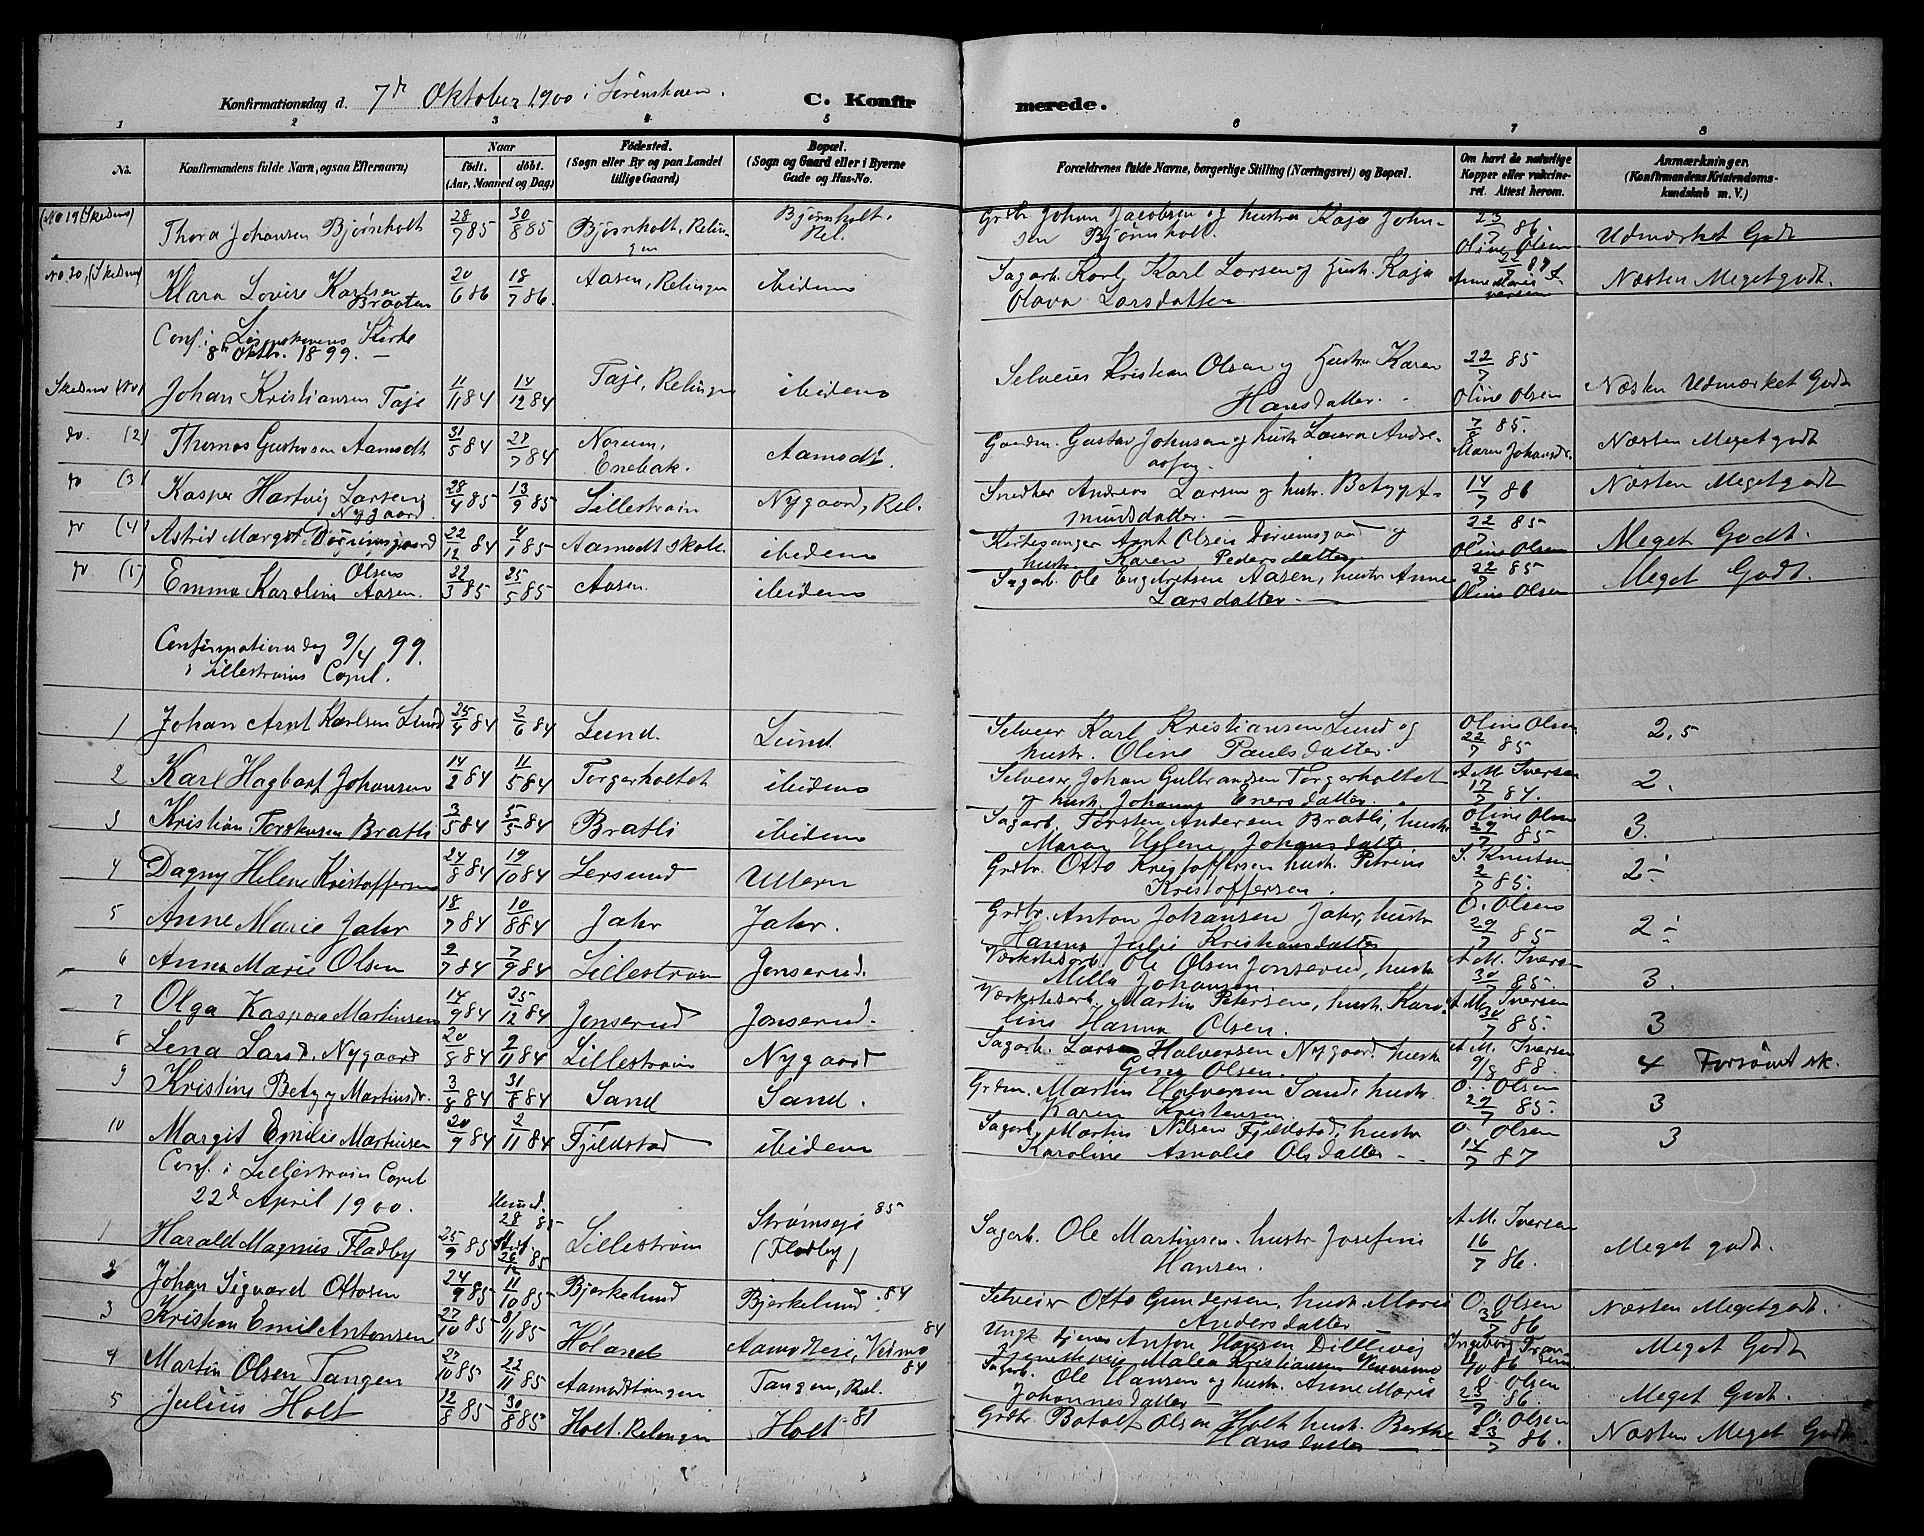 Konfirmationsdag d. 7de Oktober 1900 i
C. Konfir merede.
1 2 3 4 5 6 7 8
No.
Konfirmandens fulde Navn, ogsaa Efternavn)
Naar
født. døbt.
(Aar, Maaned og Dag)
Fødested.
(Sogn eller By og paa Landet
tillige Gaard)
Bopæl.
(Sogn og Gaard eller i Byerne
Gade og Hus-No.
Forældrenes fulde Navne, borgerlige Stilling (Næringsvei) og Bopæl.
Om havt de naturlige
Kopper eller vaksine-
ret. Attest herom.
Anmærkninger.
(Konfirmandens Kristendoms-
kundskab m. V.)
Thora Johansen Bjørnholt 28/7 85 30/8 85 Bjørnholt, Relin-
gen Bjørnholt. Rel. Johan Jacobsen og hustru Kaja John-
sen Bjørnholt. 23/7 86 Oline Olsen Udmærket Godt
Klara Lovise Karlsen
Braaten 20/6 86 18/7 86. Aasen, Relingen ibidem Sagarb. Karl Larsen og Hustr. Kaja
Olava Larsdatter Næsten Meget godt.
Conf. i Kirke
8de Oktbr. 1899.
Johan Kristiansen Taje 11/11 84 14/12 84 Taje, Relingen ibidem Selveier Kristian Olsen og Hustru Karen
Hansdatter. 22/7 85 Oline Olsen Næsten Udmærket Godt
do. (2) Thomas Gustavsen Aamodt 31/5 84 27/7 84 Norum,
Enebak. Aamodt. Gaardm. Gustav Johnsen og hustr. Laura Andre-
7/8 85. Maren Næsten Meget godt
do (3) Kasper Hartvig Larsen
Nygaard. 28/4 85 13/9 85 Lillestrøm Nygaard, Rel. Snedker Andreas Larsen og hustr. Betzy
mundsdatter. 14/7 86 Næsten Meget godt
do (4) Astrid Margot 22/12 84 4/1 85 Aamodt skole. ibidem Kirkesanger Arnt Olsen og
hustr. Karen Pedersdatter 22/7 85 Oline Olsen Meget Godt.
do (5) Emma Karoline Olsen
Aasen. 22/3 85 25/5 85 Aasen. ibidem Sagarb. Ole Engebretsen Aasen, hustr. Anne
Larsdatter 22/7 85 Oline Olsen Meget Godt.
Confirmationsdag 9/4 99.
i Lillestrøms Capel.
1 Johan Arnt Karlsen Lund 25/4 84 2/6 84 Lund. Lund Selveier Karl Kristiansen Lund og
hustr. Oline Paulsdatter. Oline Olsen 22/7 85 2,5
2 Karl Hagbart Johansen 14/2 84 11/5 84 Torgerholtet ibidem Selveier Johan Gulbrandsen Torgerholtet
og hustr. Johanne Enersdatter. A. M. Iversen 17/7 84. 2.
3 Kristian Torstensen Bratli 3/5 84 5/5 84 Bratli ibidem Sagarb. Torsten Andersen Bratli, hustr.
Maren Helene Johansdatter Oline Olsen 29/7 85 3.
4 Dagny Helene Kristoffersen 24/8 84 19/10 84 Lersund Ullern Grdbr. Otto Kristoffersen hustr. Petrine
Kristoffersen. S. Knutsen 2/7 85. 2÷
5 Anne Marie Jahr 18/7 84 10/8 84 Jahr Jahr. Grdbr. Anton Johansen Jahr, hustr.
Hanna Julie Kristiansdatter O. Olsen 29/7 85 2÷
6 Anna Marie Olsen 2/7 84 7/9 84 Lillestrøm Jonserud. Værkstedsarb. Ole Olsen Jonserud, hustr.
Milla Johansen. A. M. Iversen 30/7 85. 3.
7 Olga Kaspara Martinsen 14/9 84 25/12 84 Jonserud Jonserud. Værkstedsarb. Martin Petersen, hustr. Karo-
line Hanna Olsen. A. M. Iversen 30/7 85. 3
8 Lena Larsd. Nygaard 20/8 84 2/11 84 Lillestrøm Nygaard Sagarb. Lars Halversen Nygaard hustr.
Gina Olsen. A. M. Iversen 9/8 88. 4 Forsømt sk.
9 Kristine Betzy Martinsdr. 3/8 84 31/8 84 Sand Sand. Grdm. Martin Halversen Sand, hustr.
Karen Kristensen. O. Olsen 29/7 85. 3
10 Margit Emilie Martinsen 20/9 84 2/11 84 Fjeldstad ibidem Sagarb. Martin Nilsen Fjeldstad, hustr.
Karoline Amalie Olsdatter O. Olsen 14/7 87 3
Conf. i Lillestrøm Capel
22de April 1900.
1 Harald Magnus Fladby 25/9 85 28 85 26/12 85 Lillestrøm Strømseje 85
(Fladby) Sagarb. Ole Martinsen. hustr. Josefine
Hansen. A. M. Iversen 16/7 86. Meget godt.
2 Johan Sigvard Ottosen 24/9 85 11/10 85 Bjerkelund Bjerkelund. 84 Selveier Otto Gundersen, hustr. Marie
Andersdatter O. Olsen 30/7 86 Næsten Meget godt.
3 Kristian Emil Antonsen 27/10 85 8/11 85 Høland 84 Ungk. Anton Hansen
Malea Kristiansen Ingeborg 86 Meget Godt
4 Martin Olsen Tangen 27/10 85 22/11 85 Aamodttangen Tangen, Rel. 84 Sagarb. Ole Hansen og hustr. Anne Marie
Johannesdatter O. Olsen 23/7 86. Meget Godt.
5 Julius Holt 12/8 85 30/8 85 Holt. Relingen Holt 81 Grdbr. Botolf Olsen Holt hustr. Berthe
Hansdatter O. Olsen 23/7 86. Næsten Meget Godt.